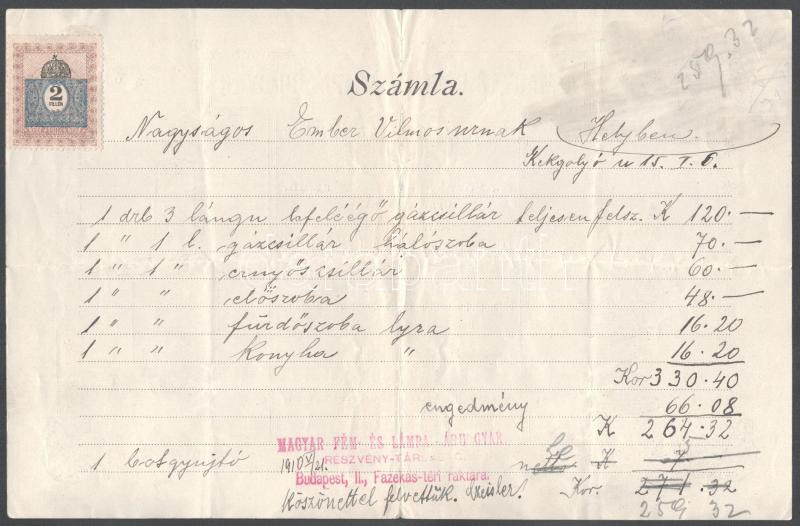 259.32
Számla.
2
FILLÉR
Nagyságos Ember Vilmos urnak Helyben.
Kékgolyó u 15. I. 6.
1 drb 3 lángu lefeléégő gázcsillár teljesen felsz. K 120.—
1 " 1 l. gázcsillár hálószoba 70.—
1 " 1 " ernyős csillár 60.—
1 " " előszoba 48.—
1 " " fürdőszoba lyra 16.20
1 " " konyha " 16.20
Kor 330.40
engedmény 66.08
K 264.32
MAGYAR FÉM- ÉS LÁMPA-ÁRU GYÁR
RÉSZVÉNY-TÁRSASÁG.
1 botgyujtó 1910 V/21. K 7
Budapest, II., Fazekas-téri raktára.
Köszönettel felvettük. Kor. 271.32
259 32